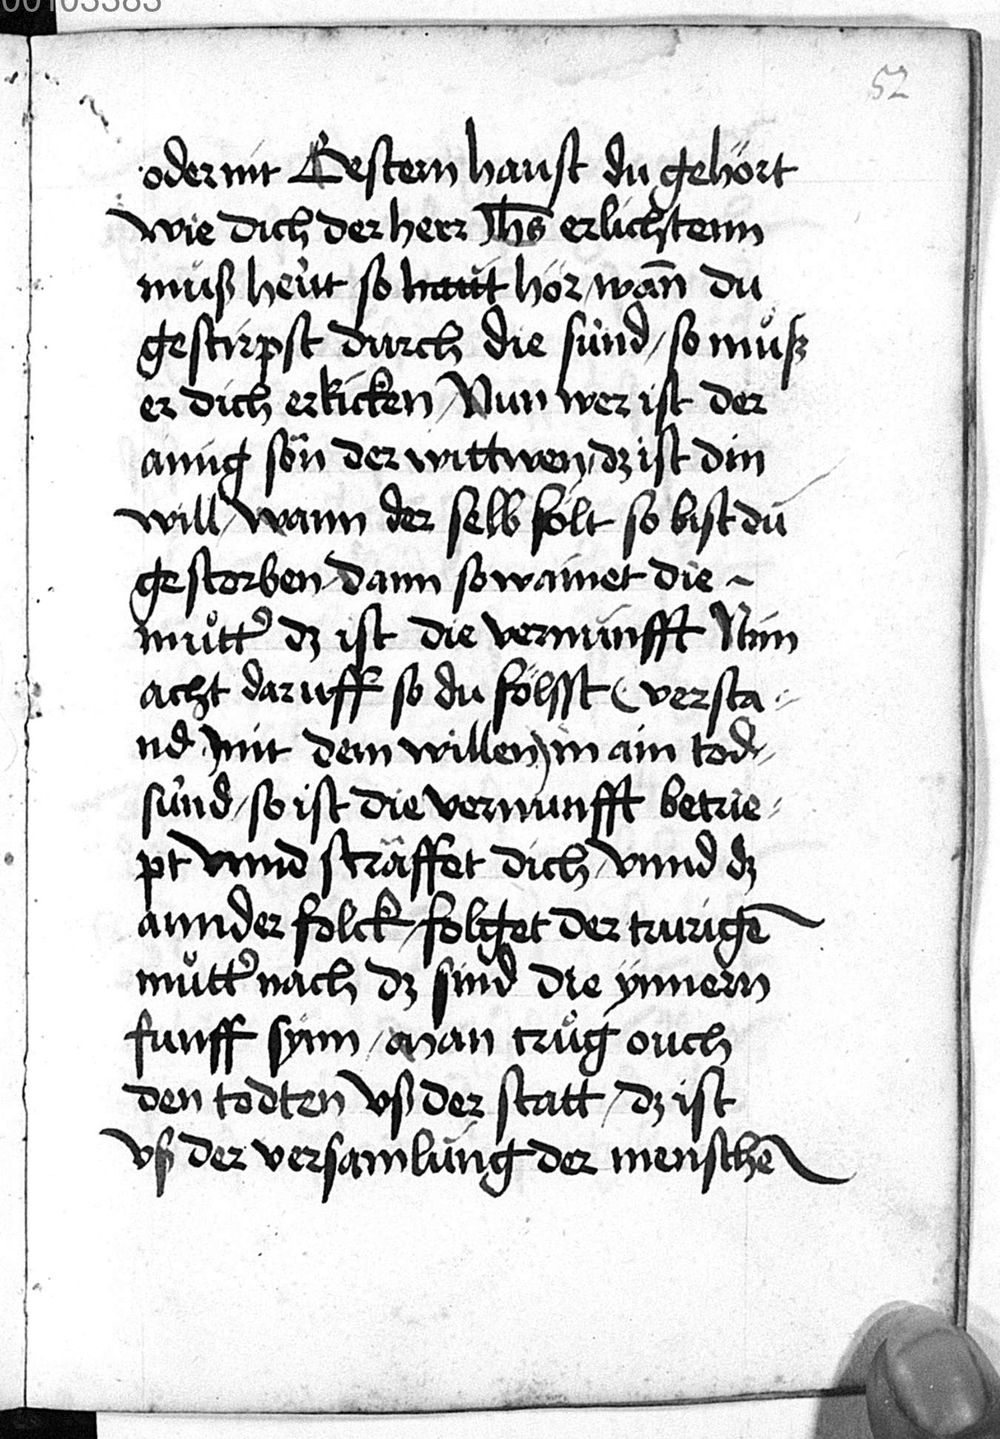 00103383
52
oder nit Gestern haust du gehört
wie dich der herr Jhs erlichtenn
muͦß heüt so haut hör / wan̄ du
gestirpst durch die sünd / so muͦsz
er dich erkicken / Nun wer ist der
ainig sön der wittwen / dz ist din
will / wann der selb folt so bist du
gestorben / dann so wainet die ~
muͦtt᾽ dz ist die vernunfft Nim
acht daruff so du fölsst ( versta⸗
nd mit dem willen ) in ain tod⸗
sünd / so ist die vernunfft betrie⸗
pt vnnd sträffet dich / vnnd dz
annder folck / folget der trurigē
muͦtt᾽ nach dz sind die ynnern
funff synn / man truͦg ouch
den todten vß der statt / dz ist
vß der versamlung der menschē